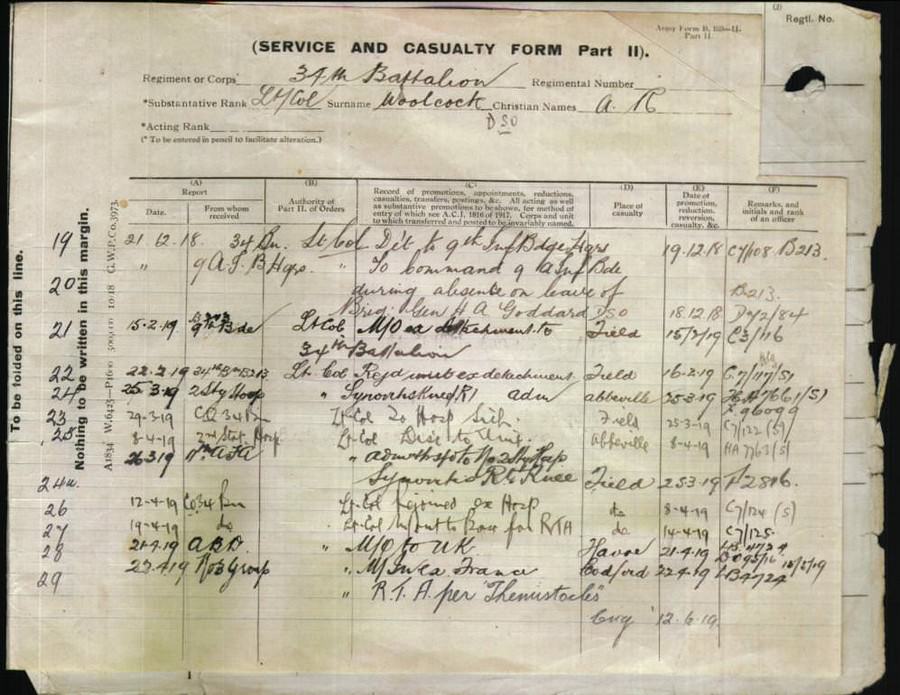 (J)
Regtl. No.
Army Form B. 
Part II.
(SERVICE AND CASUALTY FORM Part II).
Regiment or Corps 34th Battalion Regimental Number
*Substantive Rank Lt/Col Surname Woolcock Christian Names A. R
DSO
*Acting Rank
(* To be entered in pencil to facilitate alteration.)
To be folded on this line.
Nothing to be written in this margin.
G.W.P.Co.3973.
(A) Report
Date. From whom received
(B) Authority of Part II. of Orders
(C) Record of promotions, appointments, reductions, casualties, transfers, postings, &c. All acting as well as substantive promotions to be shown, for method of entry of which see A.C.I. 1816 of 1917. Corps and unit to which transferred and posted to be invariably named.
(D) Place of casualty
(E) Date of promotion, reduction, reversion, casualty, &c.
(F) Remarks, and initials and rank of an officer
19 21.12.18. 34 Bn. Lt Col Det to 9th Inf Bdge Hqrs 19.12.18 C7/108 B213.
20 " 9 A.I.B Hqrs. " To command 9 A Inf Bde
during absence on leave of B213.
Brig. Gen H A Goddard DSO 18.12.18 D2/2/84
21 15.2.19 9th Bde Lt Col M/O ex detachment to Field 15/2/19 C3/116
34th Battalion
22 22.2.19 34th Bn B213 Lt Col Rejd unit ex detachment Field 16.2.19 C.7/117/(S)
24 25.3.19 2 Sty Hosp " Synovitis Knee R1 adm Abbeville 25.3.19
23 29-3-19 CO 34 Bn Lt-Col To Hosp Sick. Field 25-3-19 C7/122 (S)
25 8-4-19 2nd Stat. Hosp Lt-Col Disc to Unit. Abbeville 8-4-19 HA 7763/(S)
24a. 26319 " adm & tsf to No 2 Sty Hosp
Synovitis Rt Knee Field 25.3.19 F2816.
26 12-4-19 CO 34 Bn Lt-Col rejoined ex Hosp do 8-4-19 C7/124 (S)
27 19-4-19 do Lt-Col to Base for RTA do 14-4-19 C7/125.
28 21.4.19 " M/O to UK. Havre 21.4.19
29 22.4.19 No 3 Group " M/In ex France Codford 22.4.19 LB4724
" R.T.A. per "Themistocles"
Eng 12.6.19.